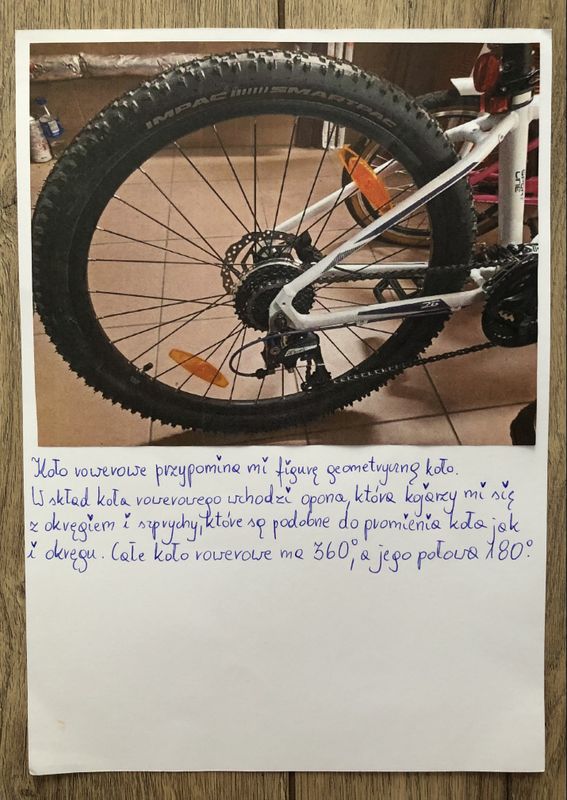 IMPAC SMARTPAC
26
Koło rowerowe przypomina mi figurę geometryczną koło.
W skład koła rowerowego wchodzi opona, która kojarzy mi się
z okręgiem i szprychy, które są podobne do promienia koła jak
i okręgu. Całe koło rowerowe ma 360°, a jego połowa 180°.